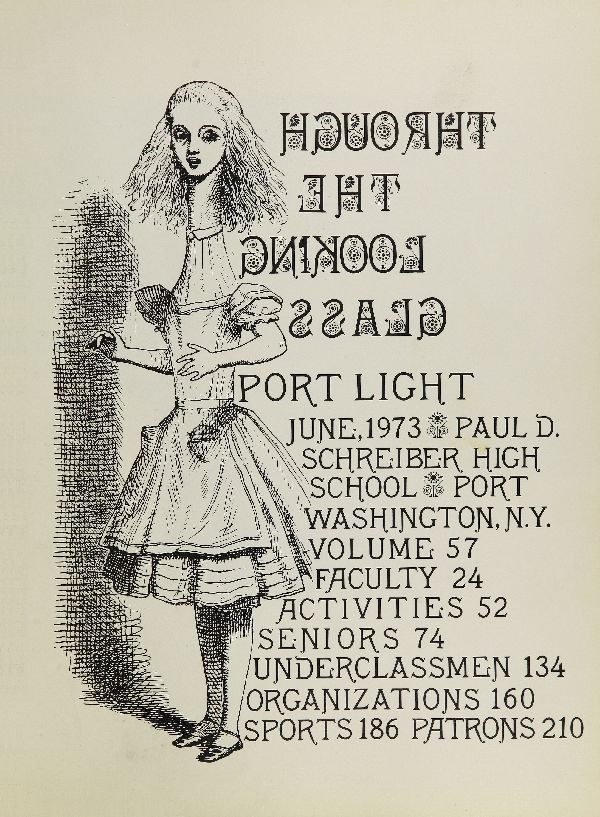 THROUGH
THE
LOOKING
GLASS
PORT LIGHT
JUNE, 1973 PAUL D.
SCHREIBER HIGH
SCHOOL PORT
WASHINGTON, N.Y.
VOLUME 57
FACULTY 24
ACTIVITIES 52
SENIORS 74
UNDERCLASSMEN 134
ORGANIZATIONS 160
SPORTS 186 PATRONS 210